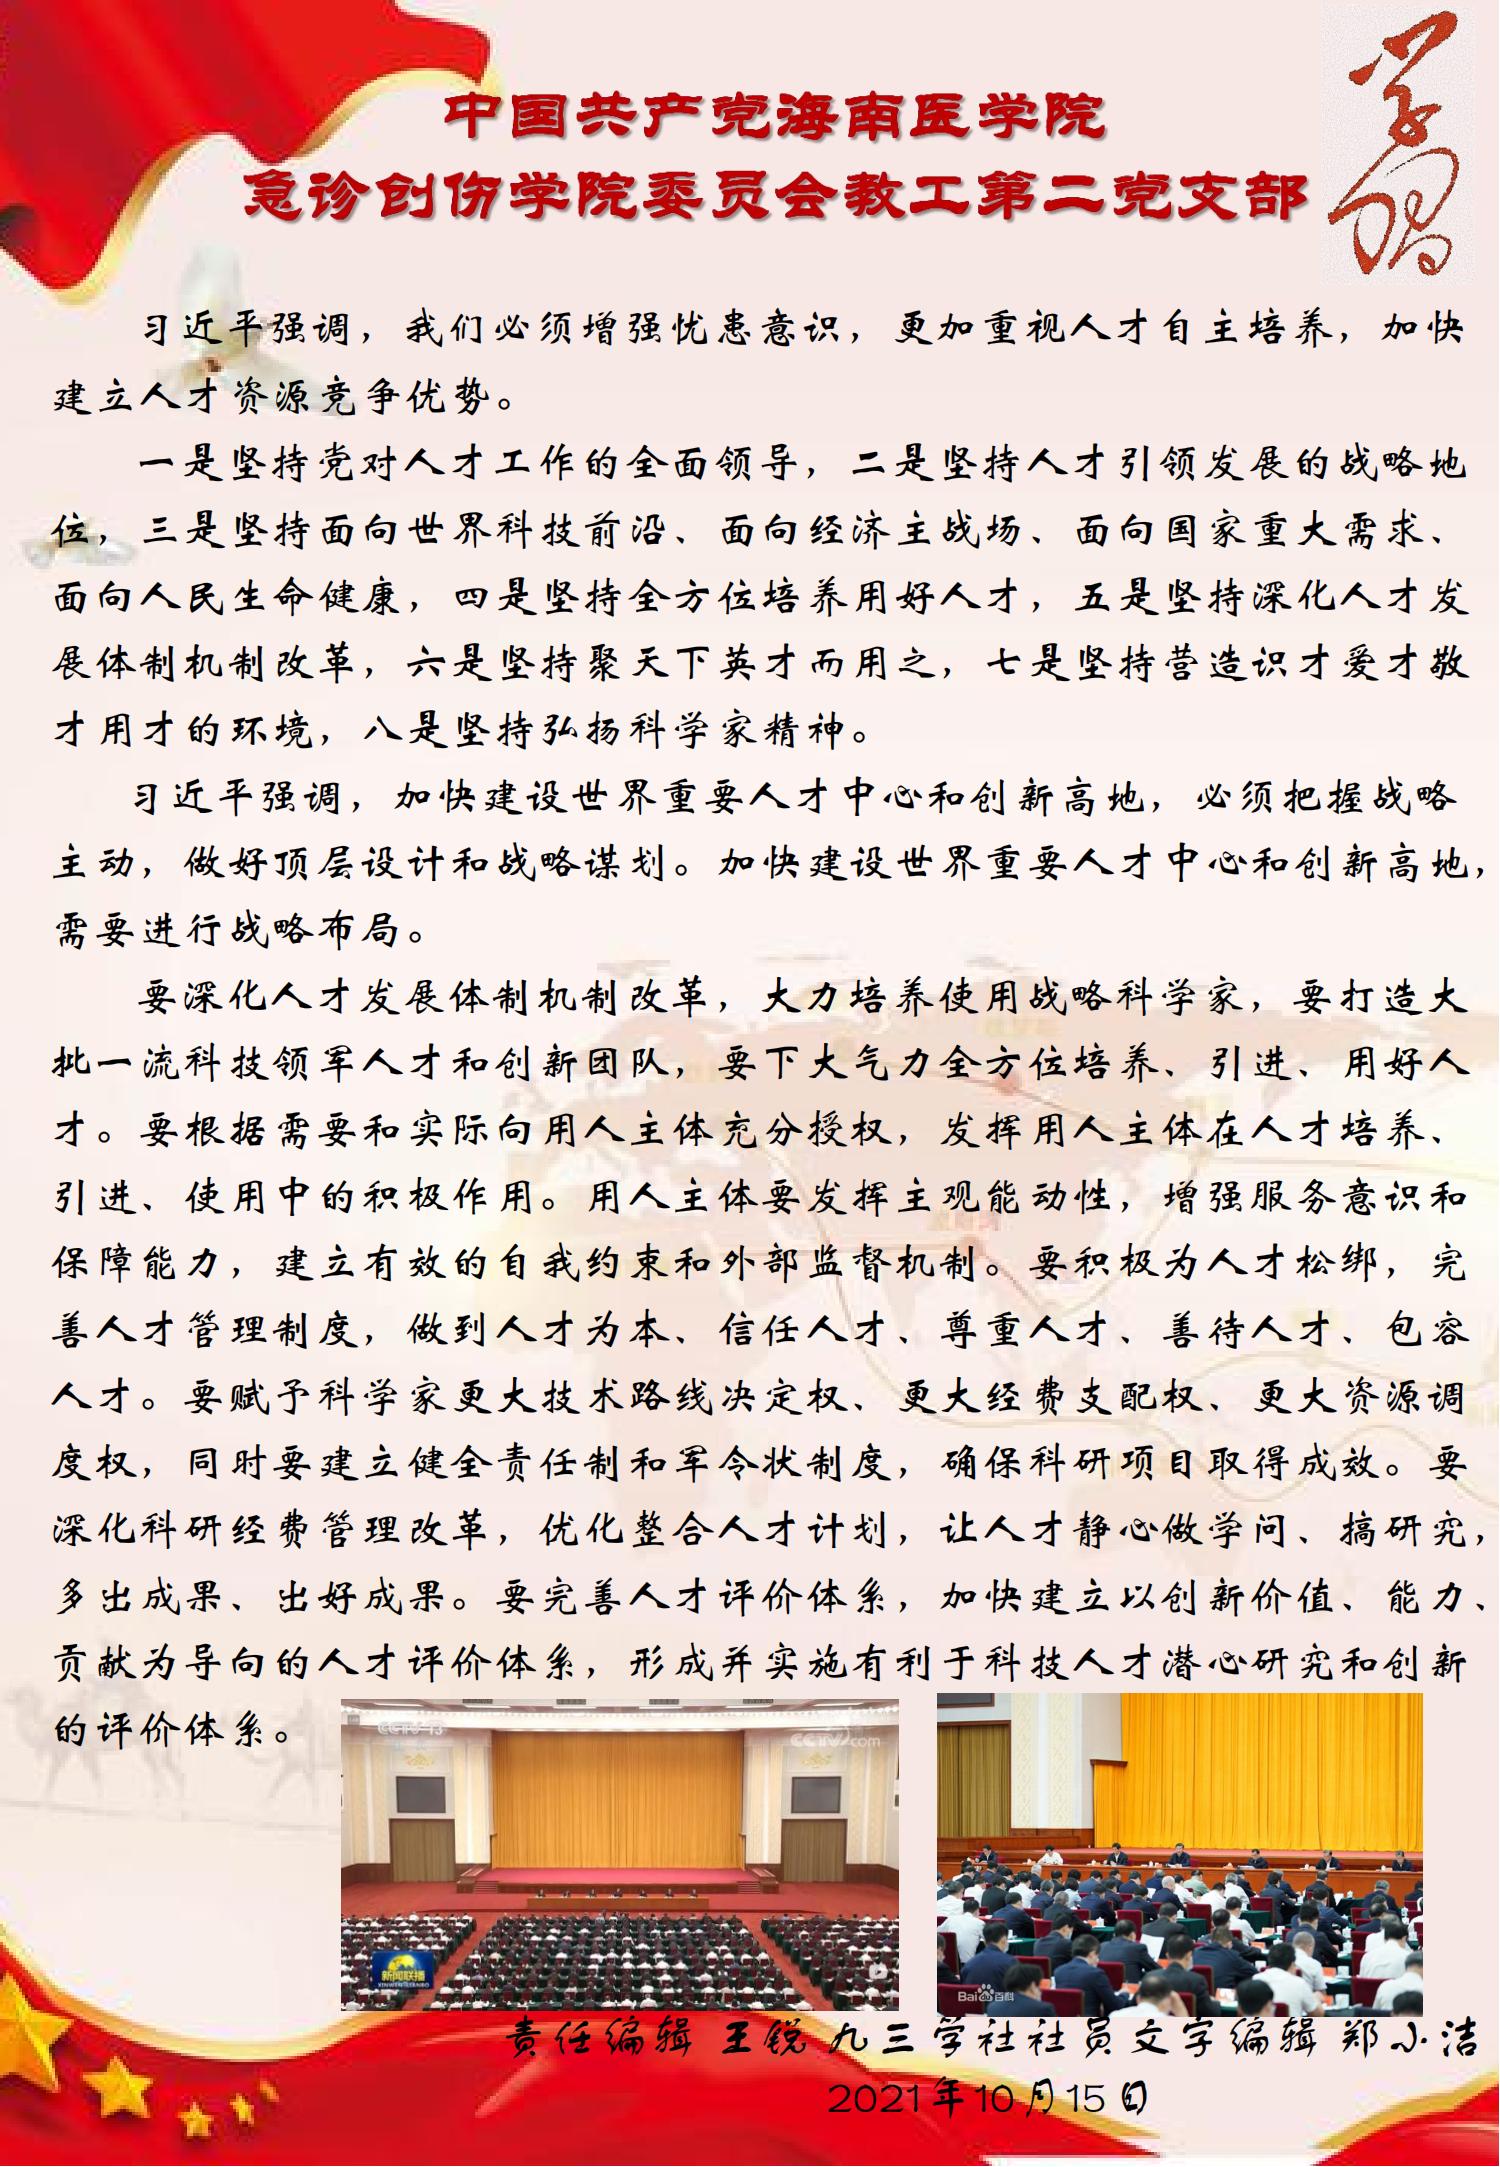 中国共产党海南医学院
急诊创伤学院委员会教工第二党支部
学习
习近平强调，我们必须增强忧患意识，更加重视人才自主培养，加快
建立人才资源竞争优势。
一是坚持党对人才工作的全面领导，二是坚持人才引领发展的战略地
位，三是坚持面向世界科技前沿、面向经济主战场、面向国家重大需求、
面向人民生命健康，四是坚持全方位培养用好人才，五是坚持深化人才发
展体制机制改革，六是坚持聚天下英才而用之，七是坚持营造识才爱才敬
才用才的环境，八是坚持弘扬科学家精神。
习近平强调，加快建设世界重要人才中心和创新高地，必须把握战略
主动，做好顶层设计和战略谋划。加快建设世界重要人才中心和创新高地，
需要进行战略布局。
要深化人才发展体制机制改革，大力培养使用战略科学家，要打造大
批一流科技领军人才和创新团队，要下大气力全方位培养、引进、用好人
才。要根据需要和实际向用人主体充分授权，发挥用人主体在人才培养、
引进、使用中的积极作用。用人主体要发挥主观能动性，增强服务意识和
保障能力，建立有效的自我约束和外部监督机制。要积极为人才松绑，完
善人才管理制度，做到人才为本、信任人才、尊重人才、善待人才、包容
人才。要赋予科学家更大技术路线决定权、更大经费支配权、更大资源调
度权，同时要建立健全责任制和军令状制度，确保科研项目取得成效。要
深化科研经费管理改革，优化整合人才计划，让人才静心做学问、搞研究，
多出成果、出好成果。要完善人才评价体系，加快建立以创新价值、能力、
贡献为导向的人才评价体系，形成并实施有利于科技人才潜心研究和创新
的评价体系。
CCTV-13
CCTV.com
新闻联播
XINWENLIANBO
Bai百科
责任编辑 王锐 九三学社社员文字编辑 郑小洁
2021年10月15日